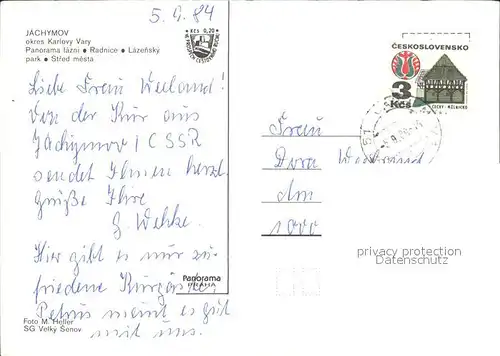 5.9.84
JÁCHYMOV
okres Karlovy Vary
Panorama lázní • Radnice • Lázeňský
park • Střed města
Kčs 0,20
ČESKOSLOVENSKO
3
Kčs
Liebe Frau Weiland!
Von der Kur aus
Jáchymov / CSSR
sendet Ihnen herzl.
Grüße Ihre
G. Wehke.
Hier gibt es nur zu-
friedene Kurgäste,
Petrus meint es gut
mit uns.
Frau
Dora
Am
1000
privacy protection
Datenschutz
Panorama
PRAHA
Foto M. Heller
SG Velký Šenov